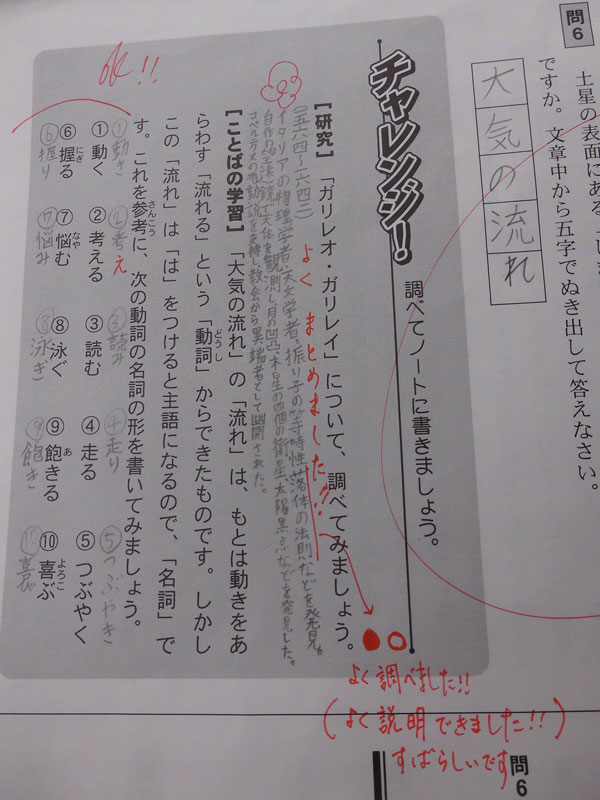 問6
土星の表面にある
ですか。文章中から五字でぬき出して答えなさい。
大気の流れ
チャレンジ！
調べてノートに書きましょう。
【研究】「ガリレオ・ガリレイ」について、調べてみましょう。
よくまとめました!!
(一五六四～一六四二)
イタリアの物理学者・天文学者。振り子の等時性、落体の法則などを発見。
自作の望遠鏡で天体を観測し、月の凹凸、木星の四個の衛星、太陽黒点などを発見した。
コペルニクスの地動説を支持し教会から異端者として幽閉された。
【ことばの学習】「大気の流れ」の「流れ」は、もとは動きをあ
らわす「流れる」という「動詞」からできたものです。しかし
どうし
この「流れ」は「は」をつけると主語になるので、「名詞」で
す。これを参考に、次の動詞の名詞の形を書いてみましょう。
さんこう
①動き ②考え ③読み ④走り ⑤つぶやき
①動く ②考える ③読む ④走る ⑤つぶやく
OK!!
⑥握る ⑦悩む ⑧泳ぐ ⑨飽きる ⑩喜ぶ
にぎ なや あ よろこ
⑥握り ⑦悩み ⑧泳ぎ ⑨飽き ⑩喜び
よく調べました!!
(よく説明できました!!)
すばらしいです
問6